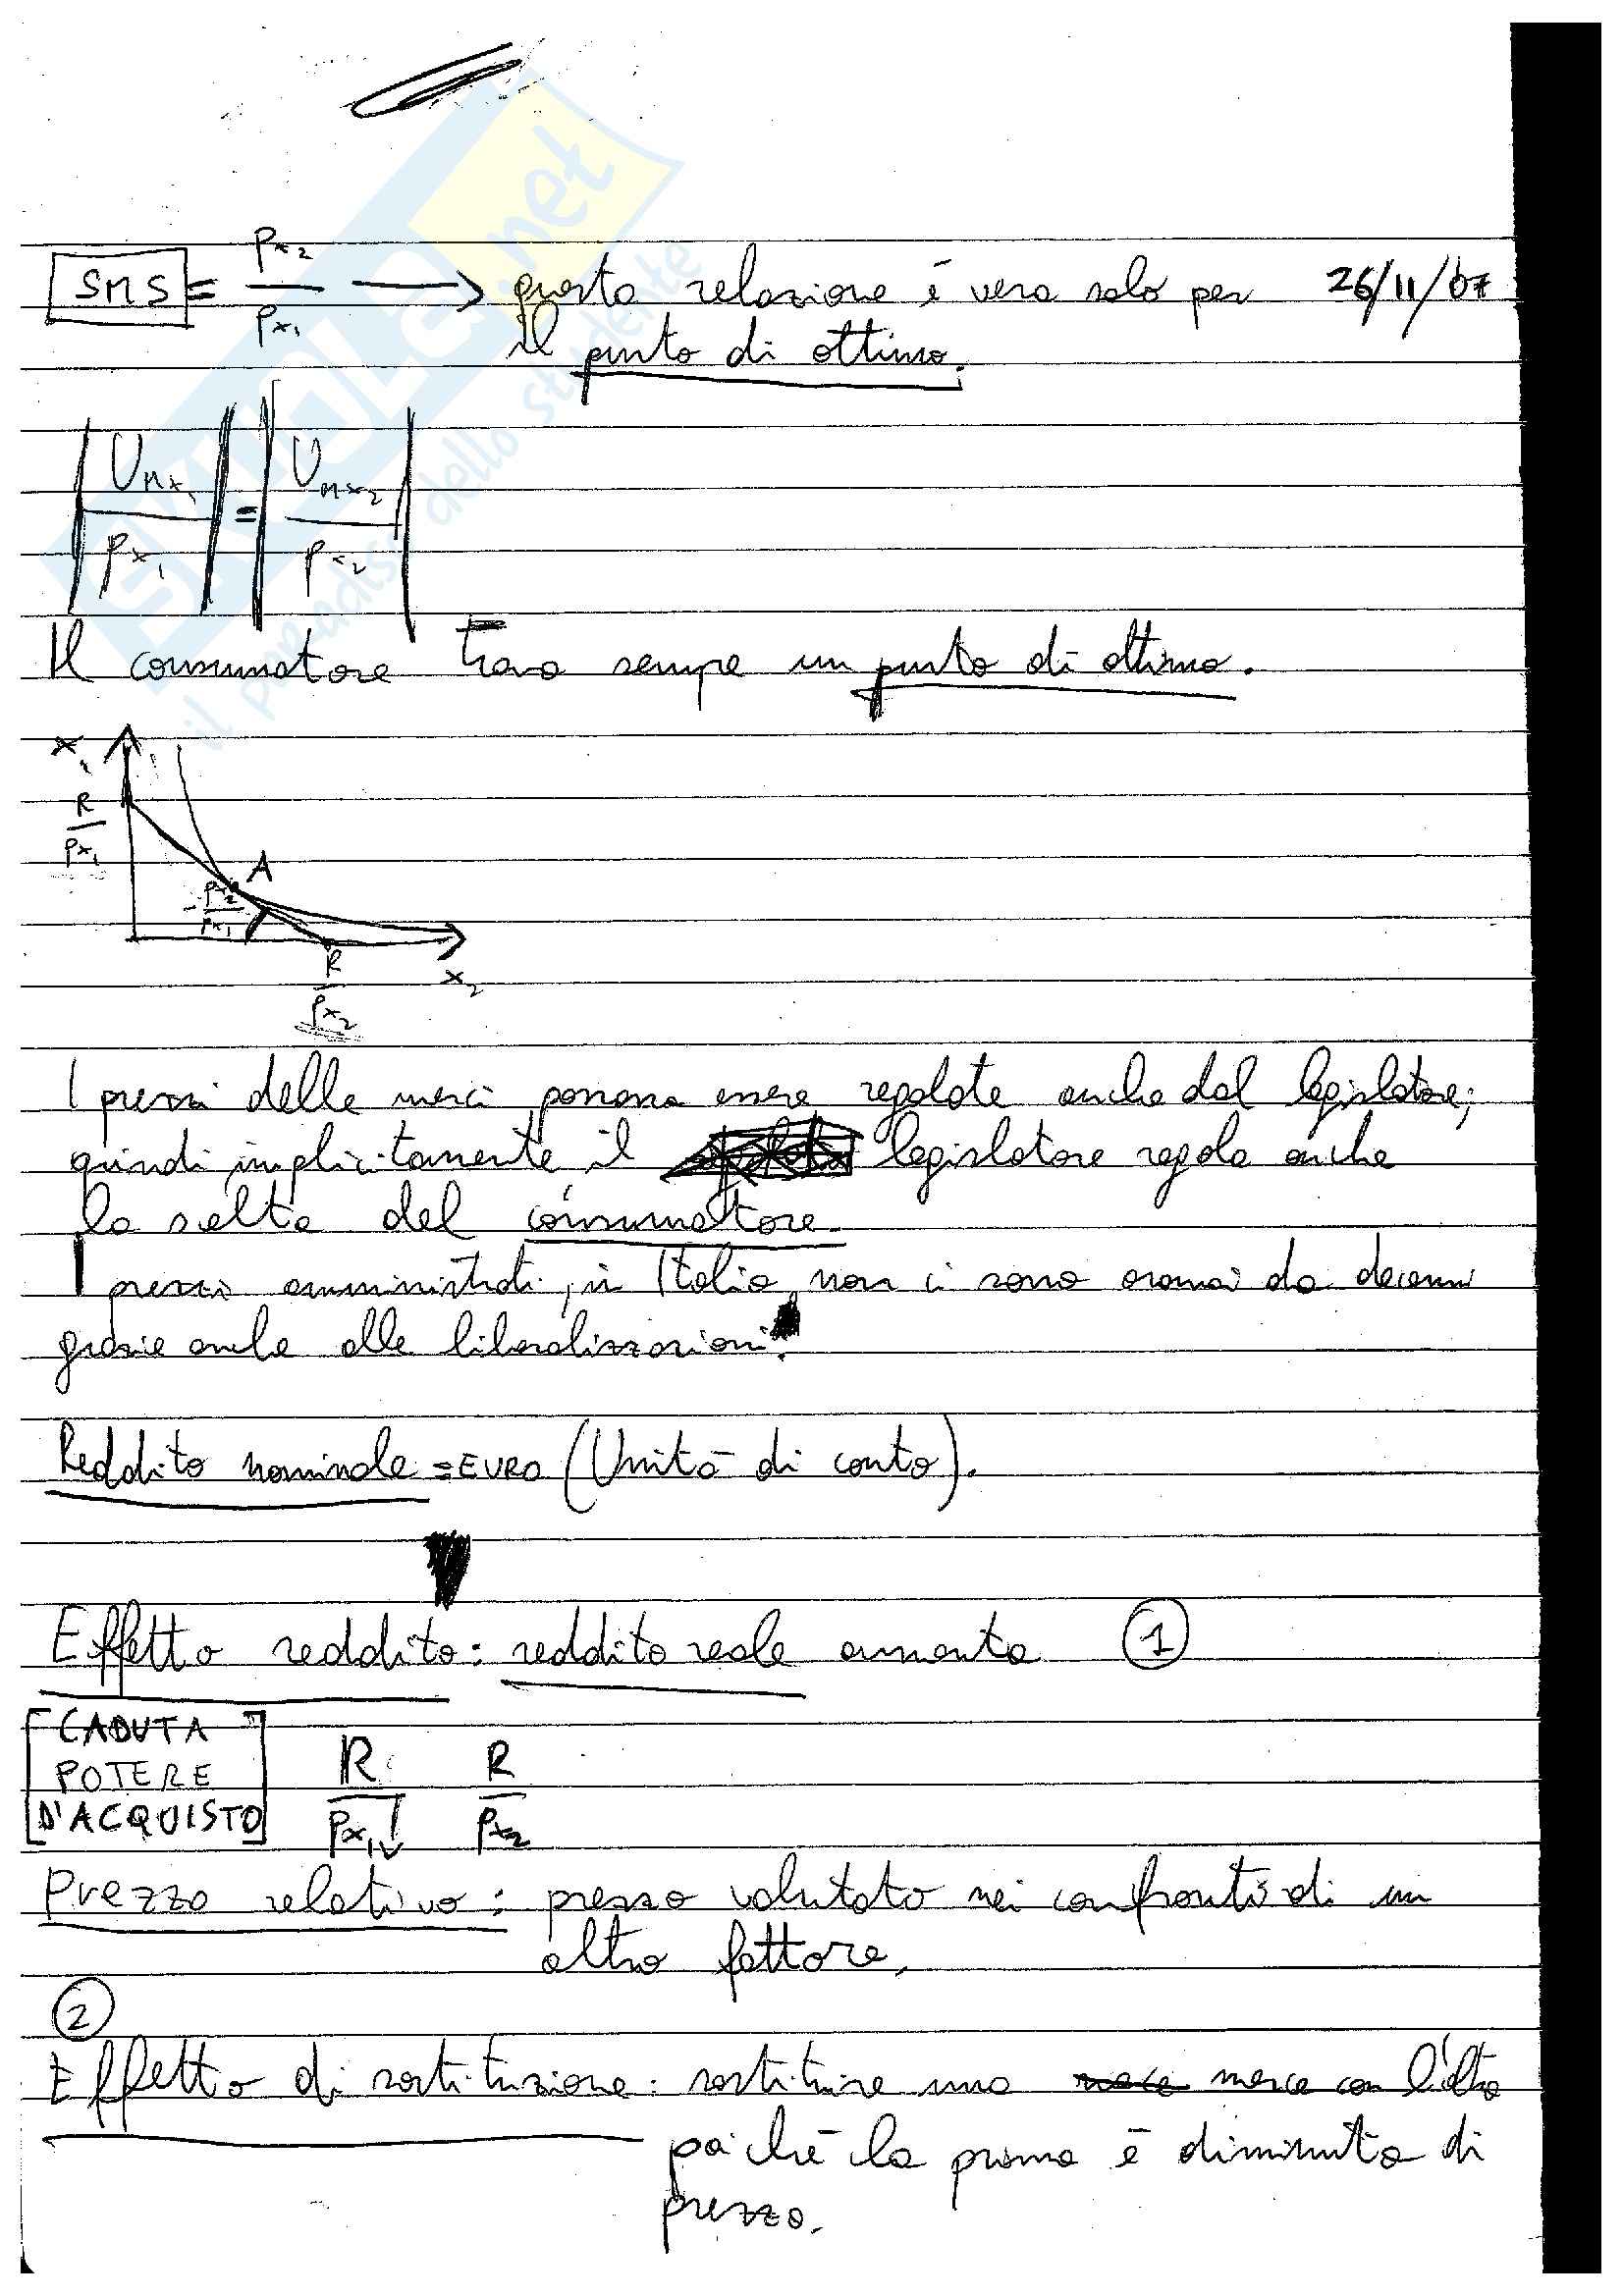 SMS = px2 / px1 → questa relazione è vera solo per 26/11/07
il punto di ottimo.
|UMx1 / px1| = |UMx2 / px2|
Il consumatore trova sempre un punto di ottimo.
x1
R / px1
A
- px2 / px1
R / px2
x2
I prezzi delle merci possono essere regolate anche dal legislatore;
quindi implicitamente il legislatore regola anche
la scelta del consumatore.
I prezzi amministrati, in Italia, non ci sono oramai da decenni
grazie anche alle liberalizzazioni.
Reddito nominale = EURO (Unità di conto).
Effetto reddito: reddito reale aumenta 1
[CADUTA
POTERE
D'ACQUISTO]
R / px1↓ R / px2
Prezzo relativo: prezzo valutato nei confronti di un
altro fattore.
2
Effetto di sostituzione: sostituire una merce con l'altra
poichè la prima è diminuita di
prezzo.
il paradiso dello studente
.net